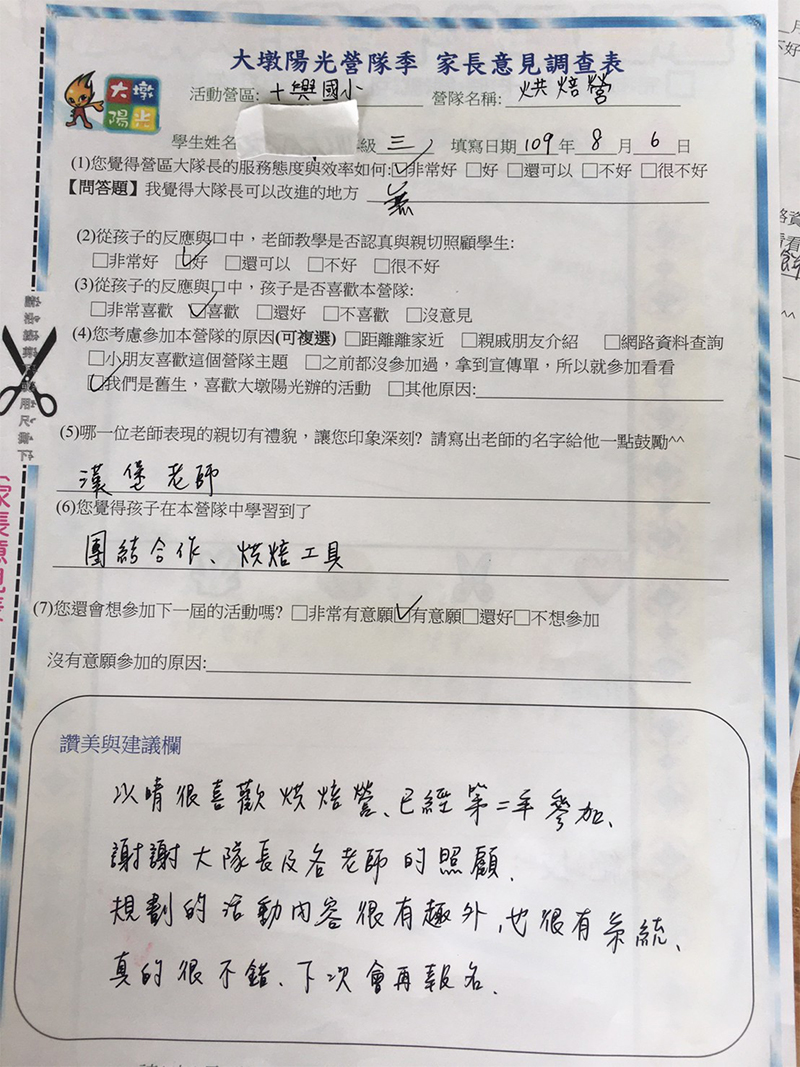 大墩陽光營隊季 家長意見調查表
大墩
陽光
活動營區: 十興國小 營隊名稱: 烘焙營
學生姓名 級 三 填寫日期 109 年 8 月 6 日
(1)您覺得營區大隊長的服務態度與效率如何:☑非常好 □好 □還可以 □不好 □很不好
【問答題】我覺得大隊長可以改進的地方 無
(2)從孩子的反應與口中,老師教學是否認真與親切照顧學生:
□非常好 ☑好 □還可以 □不好 □很不好
(3)從孩子的反應與口中,孩子是否喜歡本營隊:
□非常喜歡 ☑喜歡 □還好 □不喜歡 □沒意見
(4)您考慮參加本營隊的原因(可複選) □距離離家近 □親戚朋友介紹 □網路資料查詢
□小朋友喜歡這個營隊主題 □之前都沒參加過,拿到宣傳單,所以就參加看看
☑我們是舊生,喜歡大墩陽光辦的活動 □其他原因:
(5)哪一位老師表現的親切有禮貌,讓您印象深刻? 請寫出老師的名字給他一點鼓勵^^
漢堡老師
(6)您覺得孩子在本營隊中學習到了
團結合作、烘焙工具
(7)您還會想參加下一屆的活動嗎? □非常有意願☑有意願□還好□不想參加
沒有意願參加的原因:
讚美與建議欄
以晴很喜歡烘焙營、已經第二年參加、
謝謝大隊長及各老師的照顧、
規劃的活動內容很有趣外、也很有系統、
真的很不錯、下次會再報名、